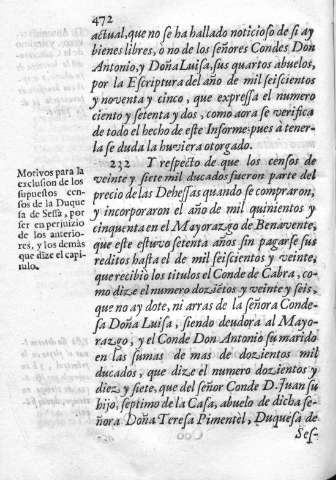 472
actual, que no se ha hallado noticioso de si ay
bienes libres, ò no de los señores Condes Don
Antonio, y Doña Luisa, sus quartos abuelos,
por la Escriptura del año de mil seiscientos
y noventa y cinco, que expressa el numero
ciento y setenta y dos, como aora se verifica
de todo el hecho de este Informe: pues à tener-
la se duda la huviera otorgado.
Motivos para la
exclusion de los
supuestos cen-
sos de la Duque
sa de Sessa, por
ser en perjuizio
de los anterio-
res, y los demàs
que dize el capi-
tulo.
232 Y respecto de que los censos de
veinte y siete mil ducados fueron parte del
precio de las Dehessas quando se compraron,
y incorporaron el año de mil quinientos y
cinquenta en el Mayorazgo de Benavente,
que este estuvo setenta años sin pagarse sus
reditos hasta el de mil seiscientos y veinte,
que recibiò los titulos el Conde de Cabra, co-
mo dize el numero dozietos y veinte y seis,
que no ay dote, ni arras de la señora Conde-
sa Doña Luisa, siendo deudora al Mayo-
razgo, y el Conde Don Antonio su marido
en las sumas de mas de dozientos mil
ducados, que dize el numero dozientos y
diez y siete, que del señor Conde D. Juan su
hijo, septimo de la Casa, abuelo de dicha se-
ñora Doña Teresa Pimentèl, Duquesa de
Ses-